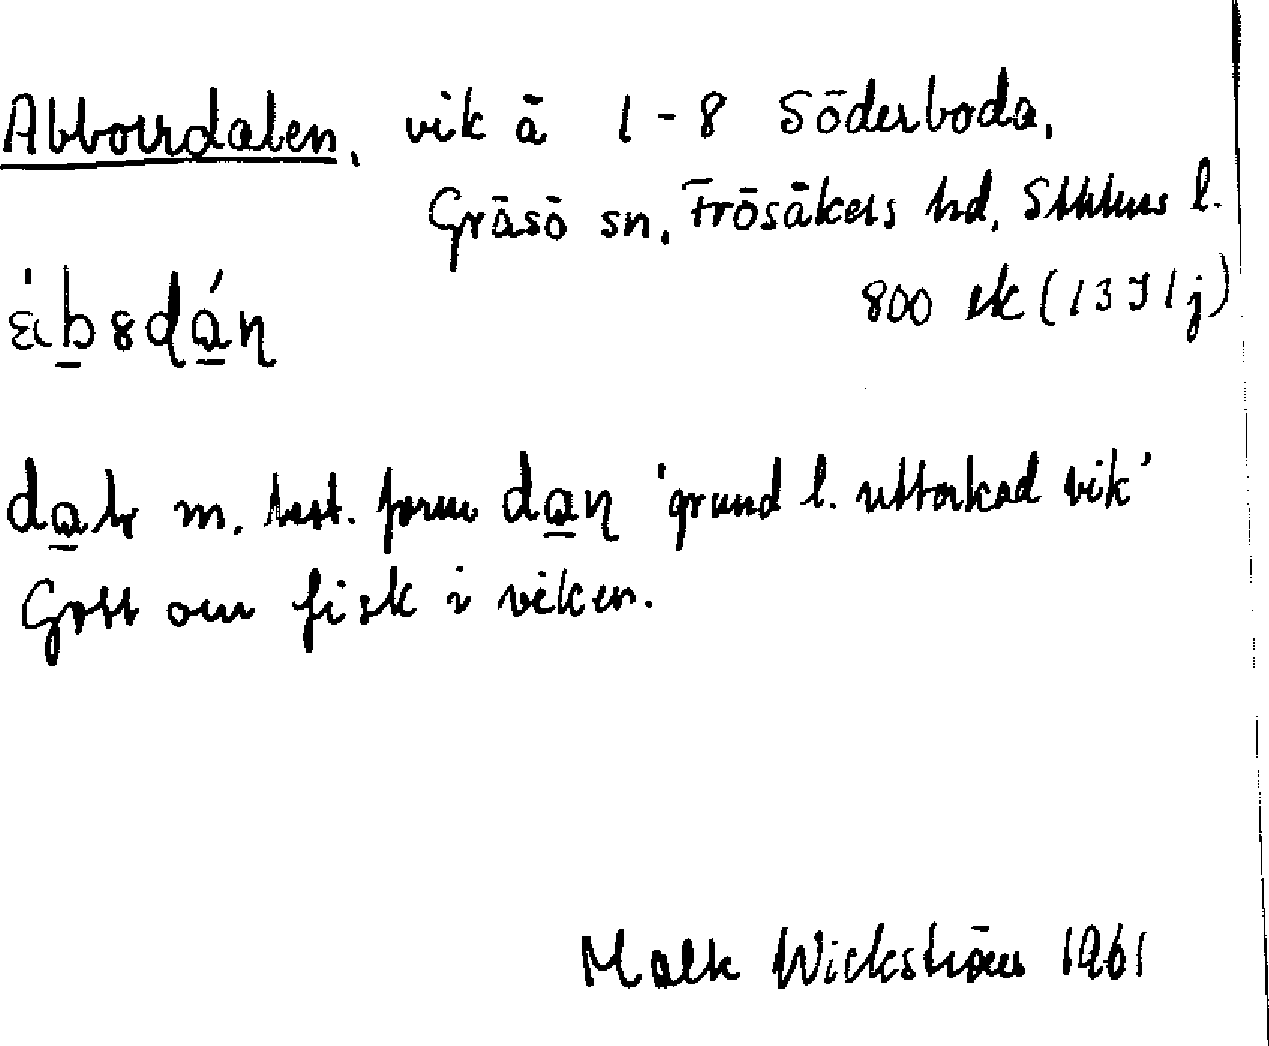 Abborrdalen, vik å 1-8 Söderboda,
Gräsö sn, Frösåkers hd, Sthlms l.
800 ek (13 I 1 j)
m. best. form dan 'grund l. uttorkad vik'
Gott om fisk i viken.
Wickström 1961